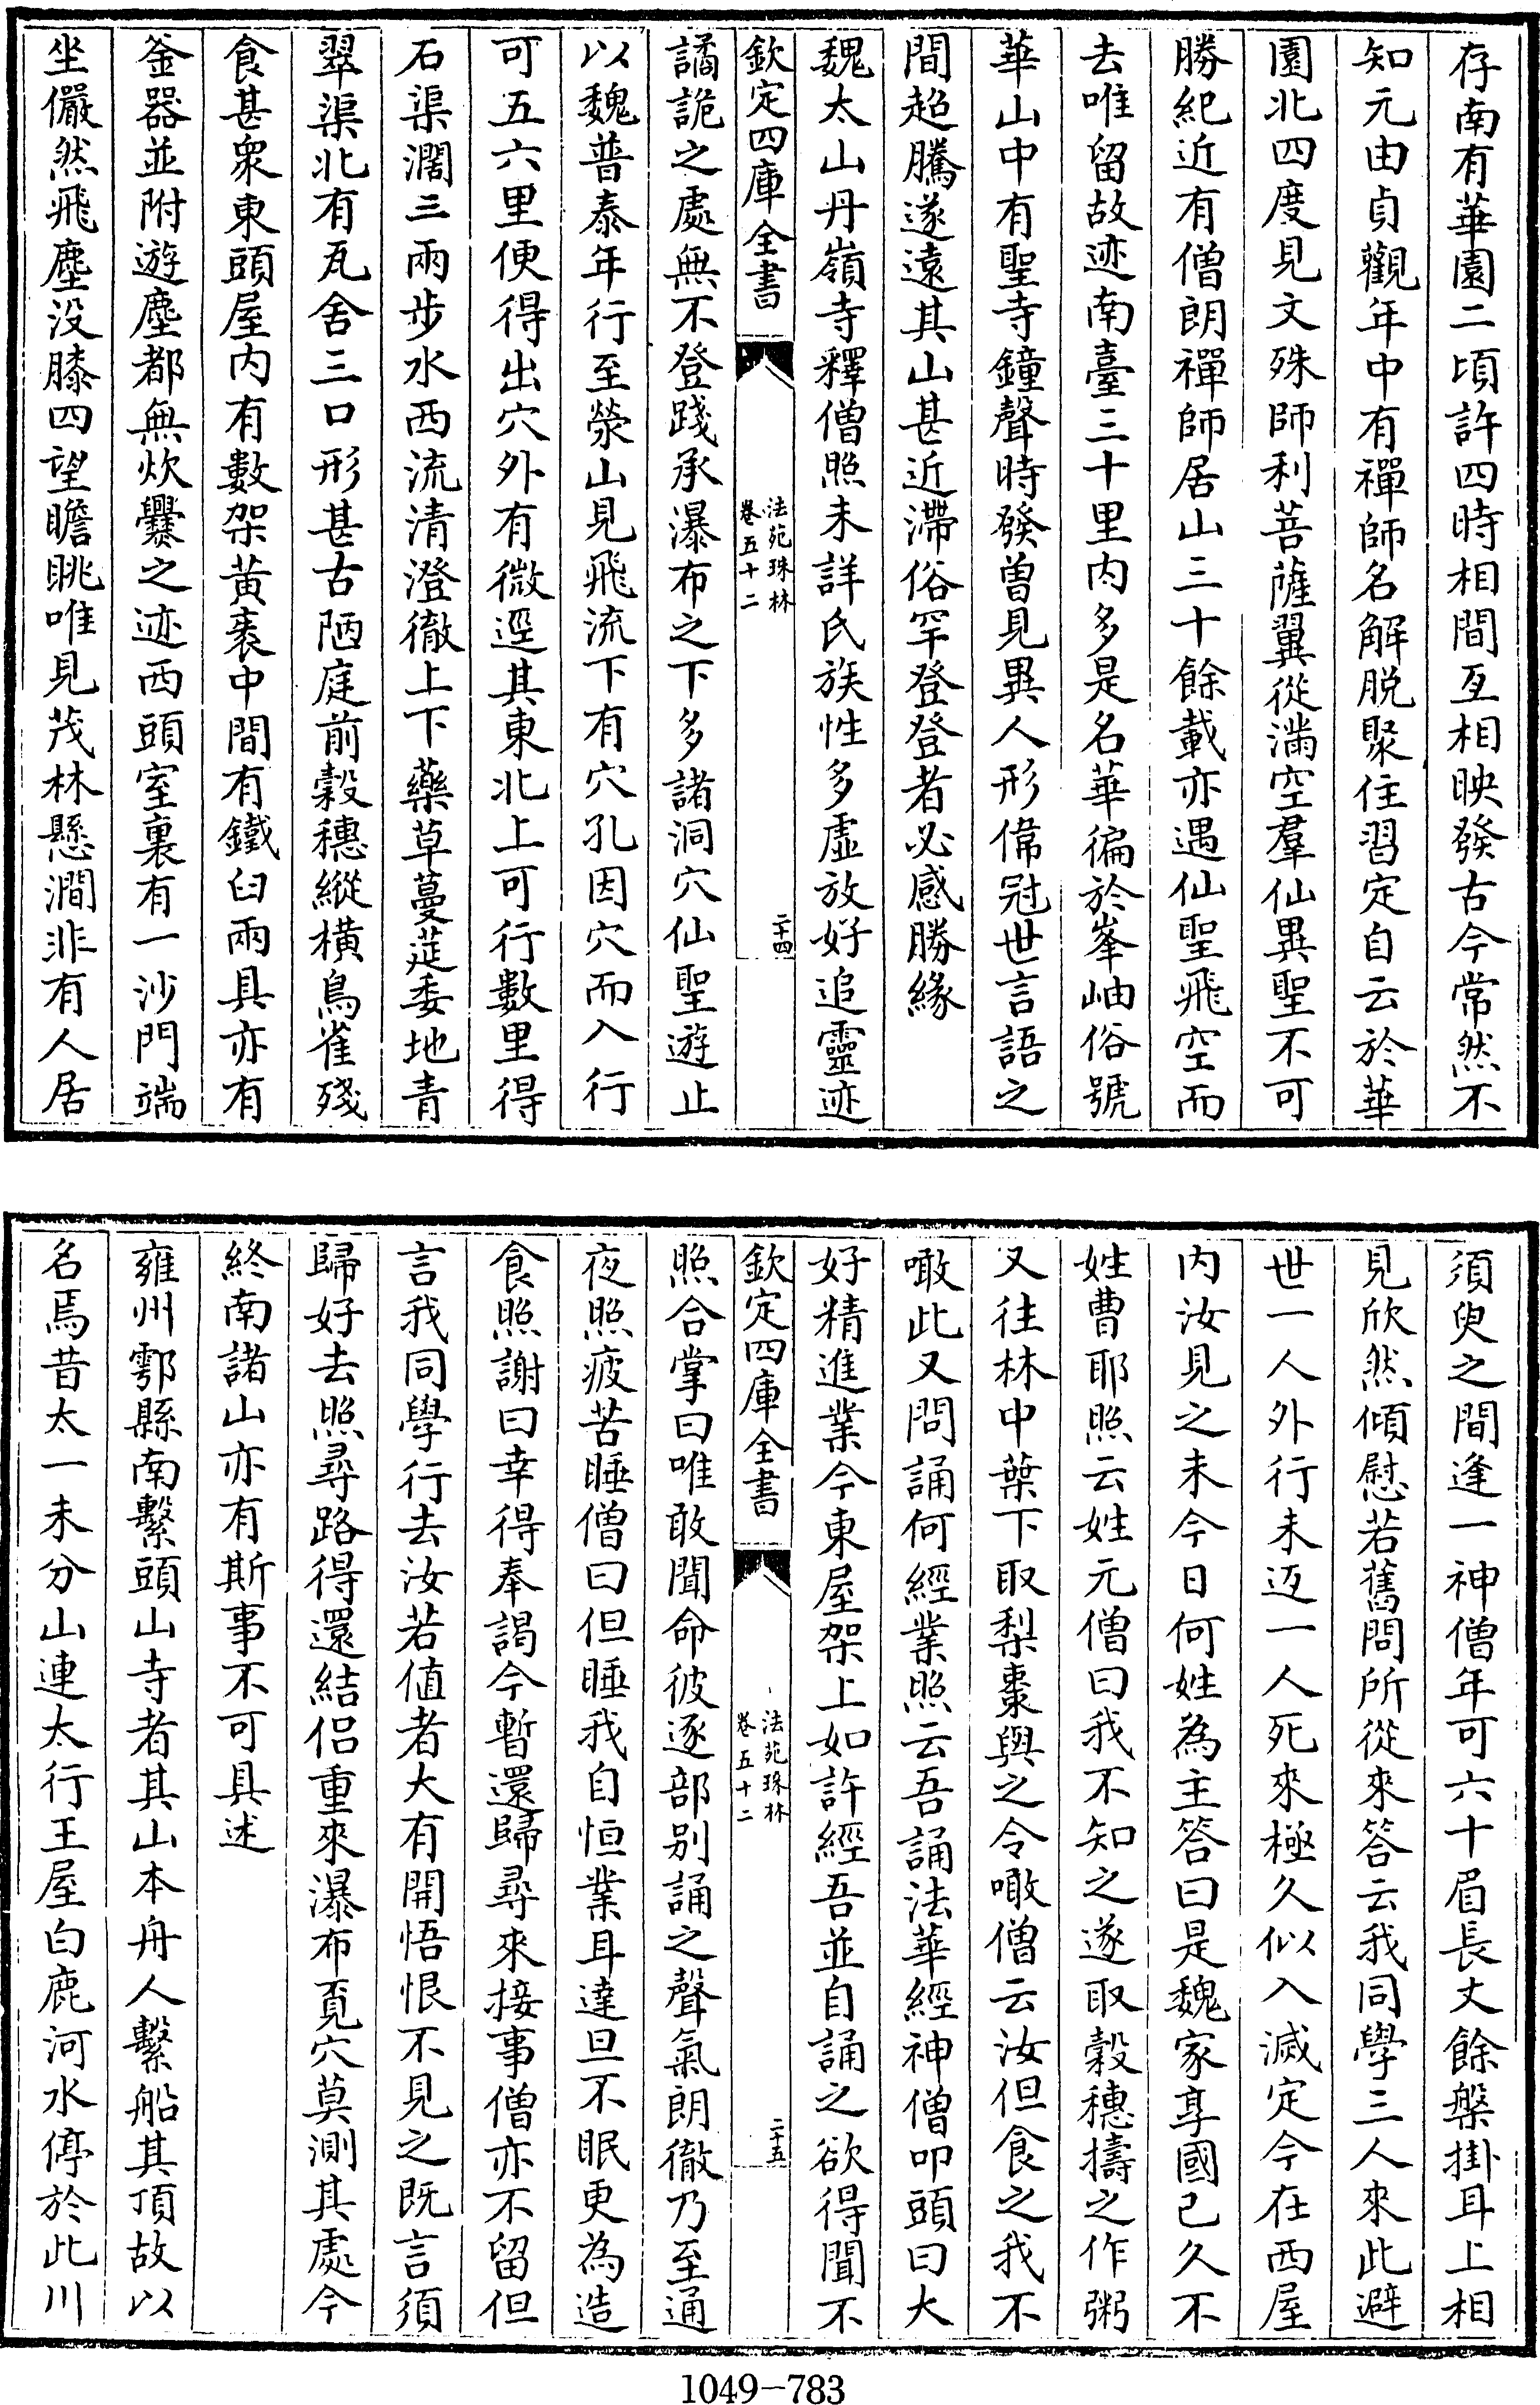 存南有華園二頃許四時相間互相映發古今常然不
知元由貞觀年中有禪師名解脱聚住習定自云於華
園北四度見文殊師利菩薩翼從滿空羣仙異聖不可
勝紀近有僧朗禪師居山三十餘載亦遇仙聖飛空而
去唯留故迹南臺三十里内多是名華徧於峯岫俗號
華山中有聖寺鐘聲時發曾見異人形偉冠世言語之
間超騰遂遠其山甚近滯俗罕登登者必感勝緣
魏太山丹嶺寺釋僧照未詳氏族性多虛放好追靈迹
欽定四庫全書
法苑珠林
卷五十二
二十四
譎詭之處無不登踐承瀑布之下多諸洞穴仙聖遊止
以魏普泰年行至滎山見飛流下有穴孔因穴而入行
可五六里便得出穴外有微逕其東北上可行數里得
石渠濶三兩步水西流清澄徹上下藥草蔓莚委地青
翠渠北有瓦舍三口形甚古陋庭前穀穗縱橫鳥雀殘
食甚衆東頭屋内有數架黃袠中間有鐵臼兩具亦有
釜器並附遊塵都無炊爨之迹西頭室裏有一沙門端
坐儼然飛塵没膝四望瞻眺唯見茂林懸澗非有人居
須臾之間逢一神僧年可六十眉長丈餘槃掛耳上相
見欣然傾慰若舊問所從來答云我同學三人來此避
世一人外行未迈一人死來極久似入滅定今在西屋
内汝見之未今日何姓為主答曰是魏家享國已久不
姓曹耶照云姓元僧曰我不知之遂取穀穗擣之作粥
又往林中葉下取梨棗與之令噉僧云汝但食之我不
噉此又問誦何經業照云吾誦法華經神僧叩頭曰大
好精進業今東屋架上如許經吾並自誦之欲得聞不
欽定四庫全書
法苑珠林
卷五十二
二十五
照合掌曰唯敢聞命彼逐部别誦之聲氣朗徹乃至通
夜照疲苦睡僧曰但睡我自恒業耳達旦不眠更為造
食照謝曰幸得奉謁今暫還歸尋來接事僧亦不留但
言我同學行去汝若值者大有開悟恨不見之既言須
歸好去照尋路得還結侣重來瀑布覔穴莫測其處今
終南諸山亦有斯事不可具述
雍州鄠縣南繫頭山寺者其山本舟人繫船其頂故以
名焉昔太一未分山連太行王屋白鹿河水停於此川
1049-783